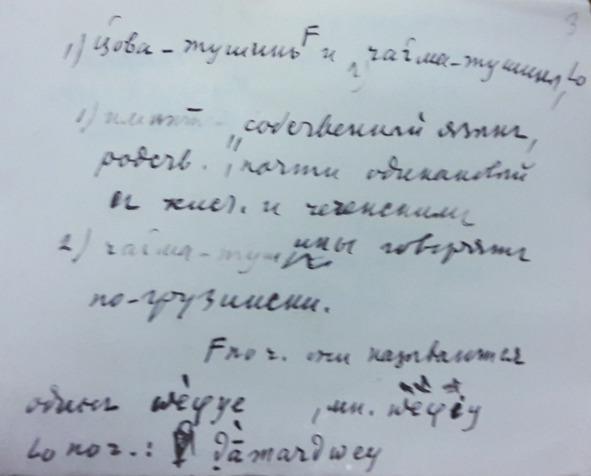 3
1) цова-тушины F и 2) чагма-тушины, Lo
1) имѣютъ собственный языкъ,
родств. , почти одинаковый
съ кист. и чеченскимъ
2) чагма-тушины говорятъ
по-грузински.
F по ч. они называются
одинъ , мн.
Lo по ч.: dāmardwey